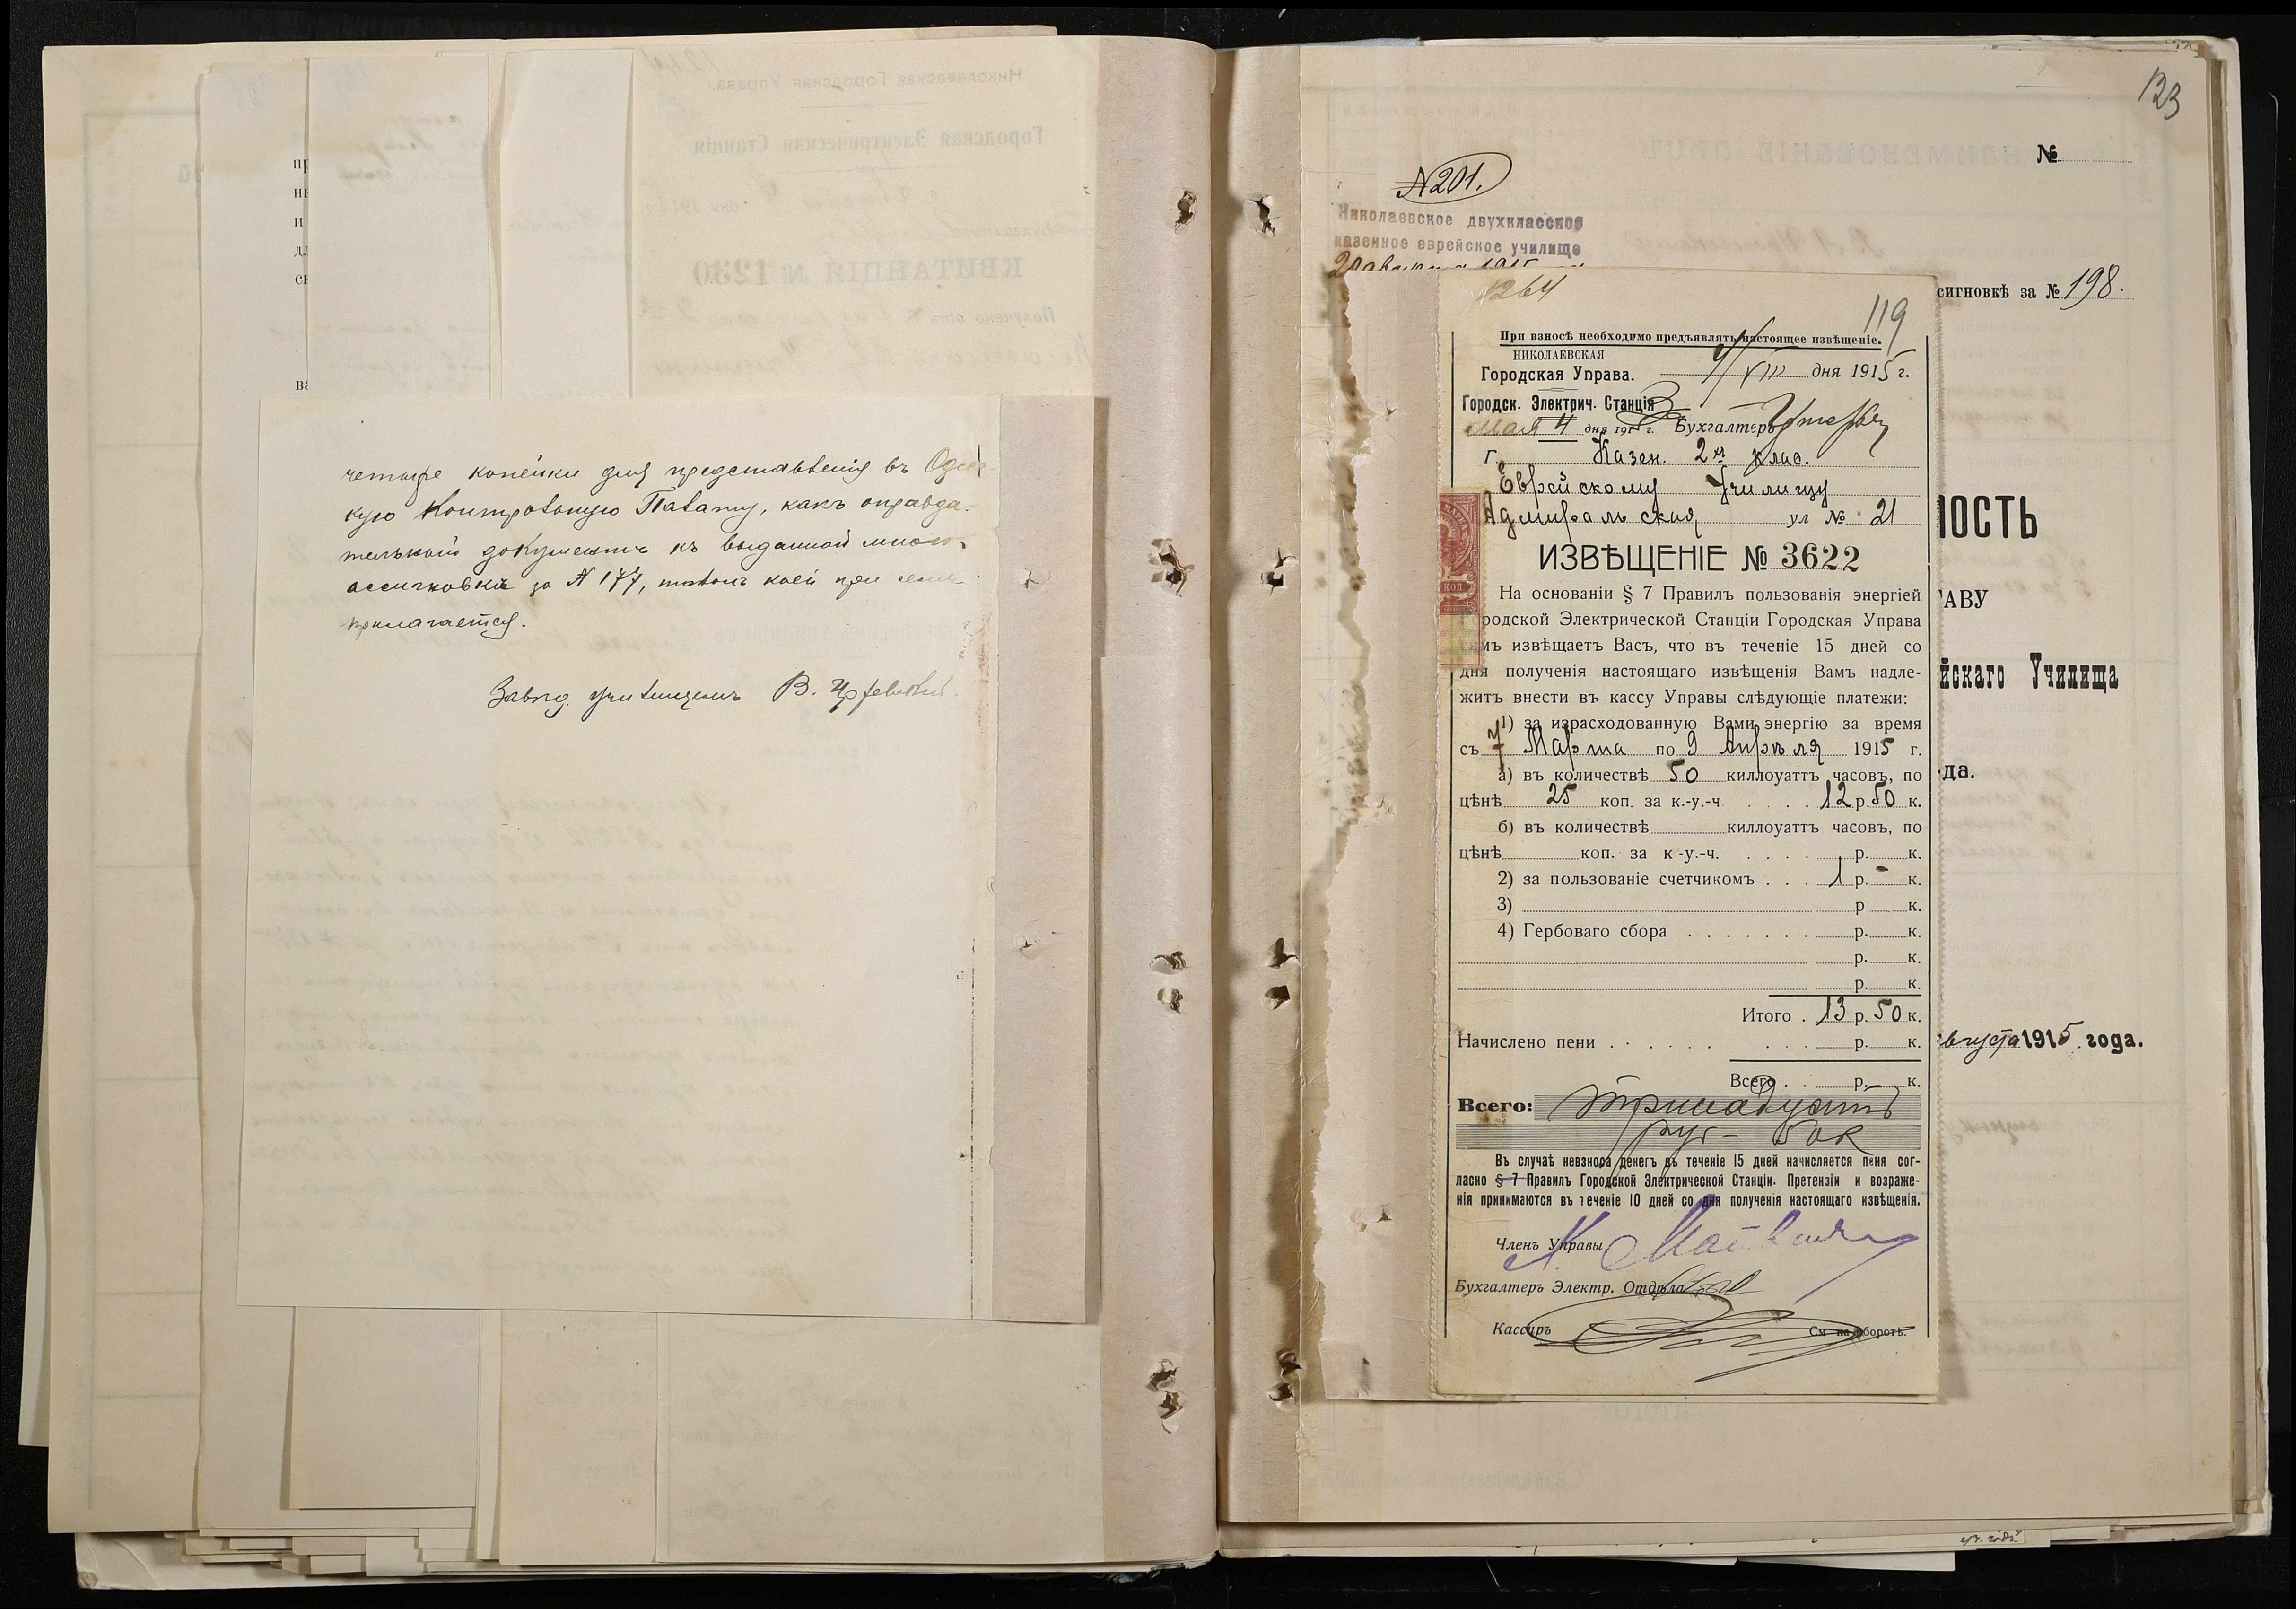 четыре копейки для представленія въ Одес-
кую Контрольную Палату, какъ оправда-
тельный документъ къ выданной мною
ассигновкѣ за № 177, талонъ коей при семъ
прилагается.
Завѣд. училищемъ В.
123
№
№ 201.
Николаевское двухклассное
казенное еврейское училище
сигновкѣ за № 198.
ІОСТЬ
АВУ
йскаго Училища
да.
августа 1915 года.
1264
119
При взносѣ необходимо предъявлять настоящее извѣщеніе.
НИКОЛАЕВСКАЯ
Городская Управа. 4/VIII дня 1915 г.
Городск. Электрич. Станція
Мая 4 дня 1915 г. Бухгалтеръ
г. Казен. 2х клас.
Еврейскому Училищу
Адмиральская ул № 21
ИЗВѢЩЕНІЕ № 3622
На основаніи § 7 Правилъ пользованія энергіей
родской Электрической Станціи Городская Управа
мъ извѣщаетъ Васъ, что въ теченіе 15 дней со
дня полученія настоящаго извѣщенія Вамъ надле-
житъ внести въ кассу Управы слѣдующіе платежи:
1) за израсходованную Вами энергію за время
съ 7 Марта по 9 Апрѣля 1915 г.
а) въ количествѣ 50 киллоуаттъ часовъ, по
цѣнѣ 25 коп. за к.-у.-ч. . . . 12 р. 50 к.
б) въ количествѣ киллоуаттъ часовъ, по
цѣнѣ коп. за к-у.-ч. . . . . р. к.
2) за пользованіе счетчикомъ . . . 1 р. - к.
3) р к.
4) Гербоваго сбора . . . . . . . р. к.
р. к.
р. к.
Итого . 13 р. 50 к.
Начислено пени . . . . . . . . . р. к.
Всего . . р. к.
Всего: тринадцать
руб - 50 к
Въ случаѣ невзноса денегъ въ теченіе 15 дней начисляется пеня сог-
ласно § 7 Правилъ Городской Электрической Станціи. Претензіи и возраже-
нія принимаются въ теченіе 10 дней со дня полученія настоящаго извѣщенія.
Членъ Управы
Бухгалтеръ Электр. Отдѣла
Кассиръ См на оборотѣ.